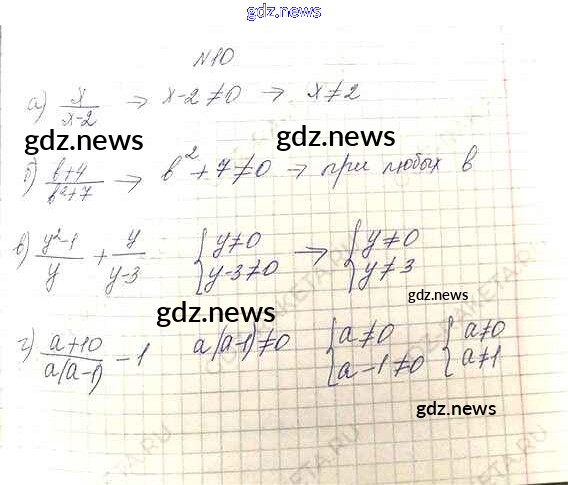 gdz.news
N10
а) x/(x-2) → x-2≠0 → x≠2
gdz.news gdz.news
б) (b+4)/(b²+7) → b²+7≠0 → при любых b
в) (y²-1)/y + y/(y-3) {y≠0 y-3≠0 → {y≠0 y≠3
gdz.news gdz.news
г) (a+10)/(a(a-1)) - 1 a(a-1)≠0 {a≠0 a-1≠0 {a≠0 a≠1
gdz.news